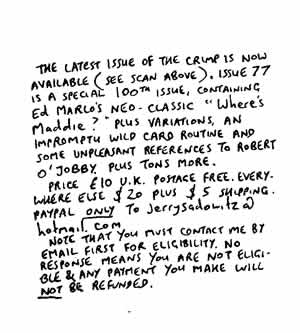 THE LATEST ISSUE OF THE CRIMP IS NOW
AVAILABLE (SEE SCAN ABOVE). ISSUE 77
IS A SPECIAL 100TH ISSUE, CONTAINING
Ed MARLO'S NEO-CLASSIC "Where's
Maddie?" PLUS VARIATIONS, AN
IMPROMPTU WILD CARD ROUTINE AND
SOME UNPLEASANT REFERENCES TO ROBERT
O'JOBBY. PLUS TONS MORE.
PRICE £10 U.K. POSTAGE FREE. EVERY-
WHERE ELSE $20 PLUS $5 SHIPPING.
PAYPAL ONLY TO Jerrysadowitz@
hotmail.com
NOTE THAT YOU MUST CONTACT ME BY
EMAIL FIRST FOR ELIGIBILITY. NO
RESPONSE MEANS YOU ARE NOT ELIGI-
BLE & ANY PAYMENT YOU MAKE WILL
NOT BE REFUNDED.